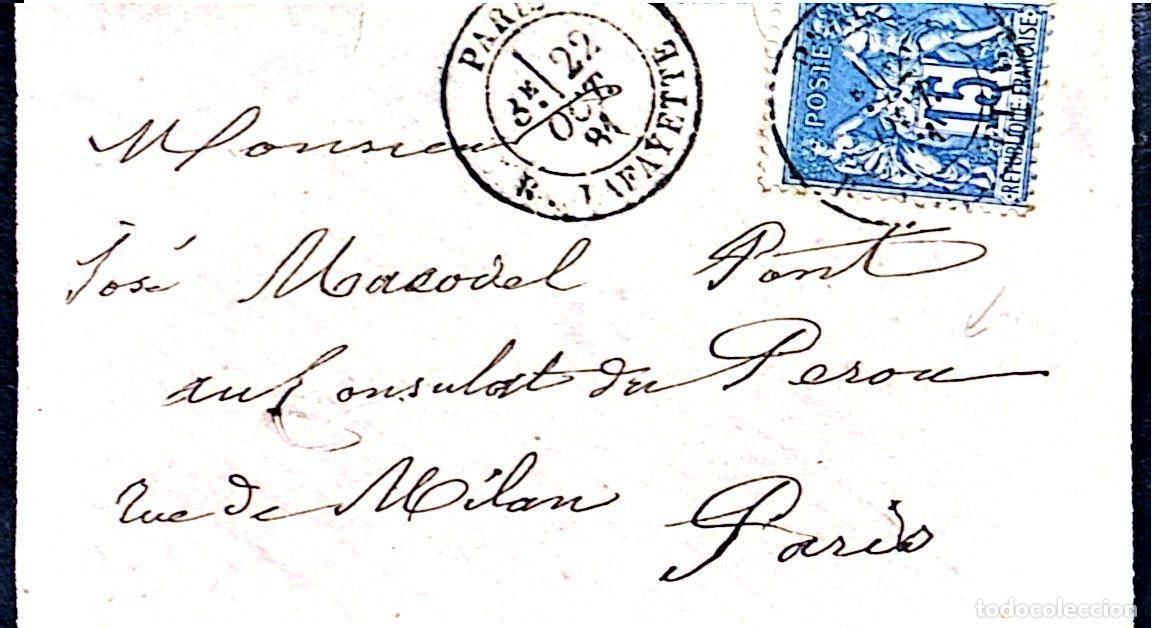 PARIS
R. LAFAYETTE
3E
22
OCT
POSTES
15
REPUBLIQUE FRANCAISE
Monsieur
José Macovel Pont
au Consulat du Perou
rue de Milan Paris
todocoleccion